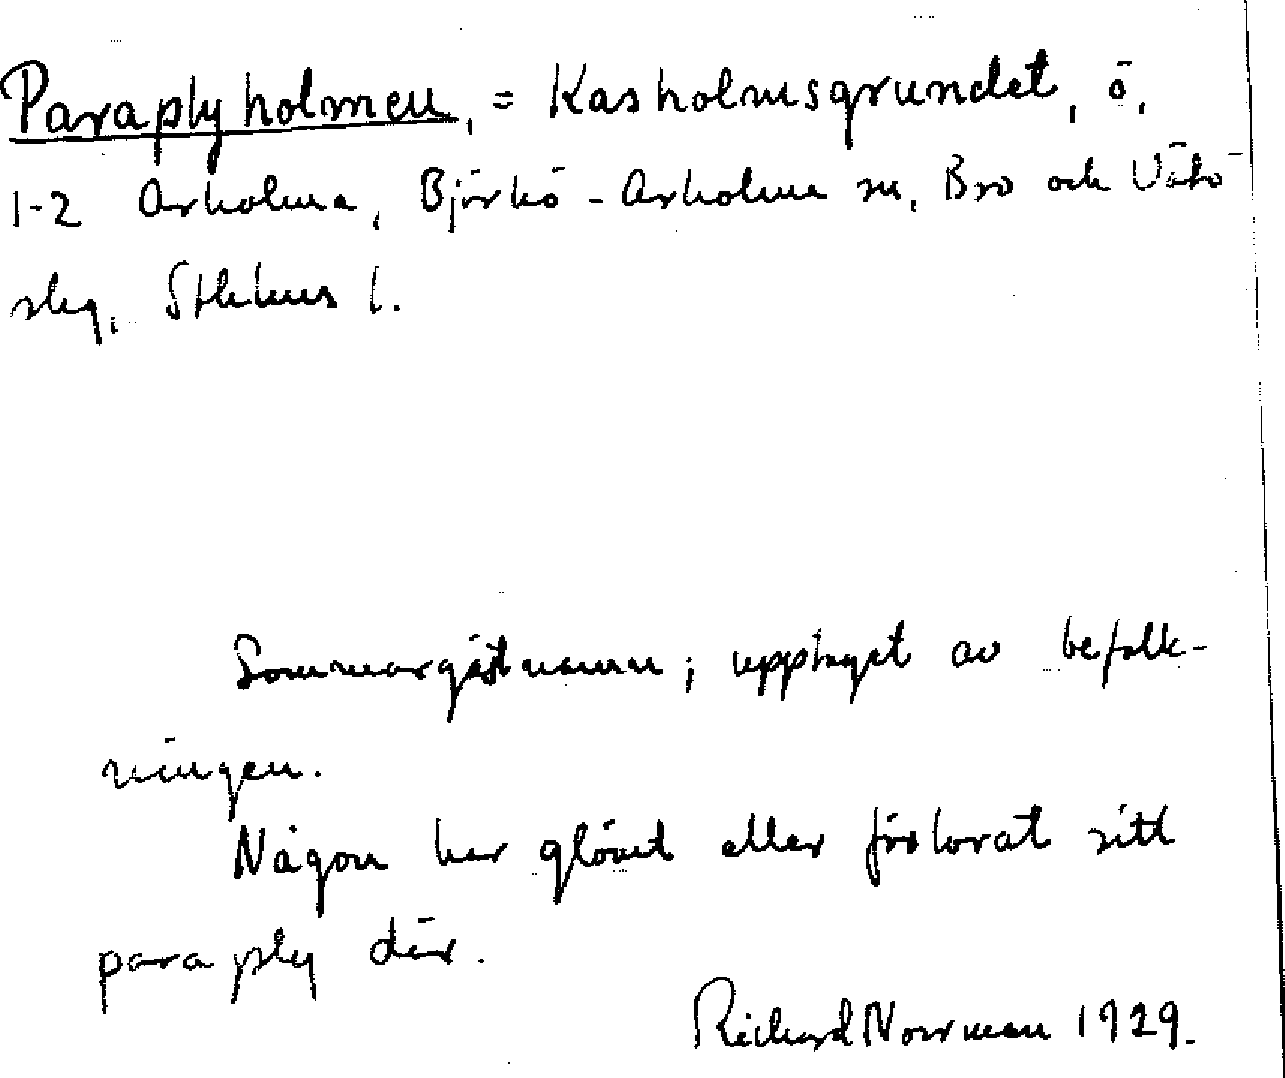 Paraplyholmen, = Kasholmsgrundet, ö,
1-2 Arholma, Björkö-Arholma sn, Bro och Vätö
skg, Sthlms l.
Sommargästnamn; upptaget av befolk-
ningen.
Någon har glömt eller förlorat sitt
paraply där.
Richard Norrman 1929.